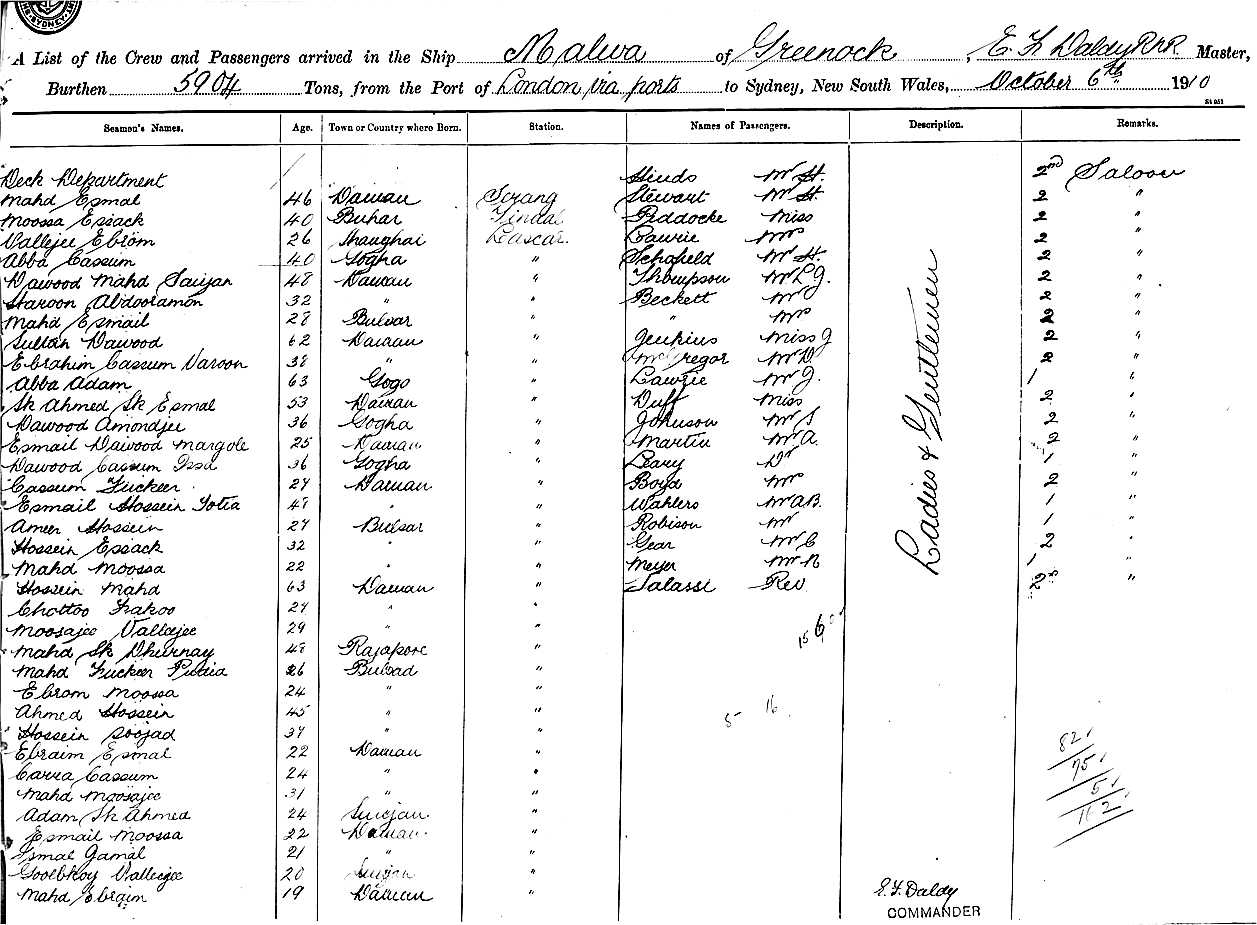 SYDNEY
A List of the Crew and Passengers arrived in the Ship Malwa of Greenock, E. F. Daldy RNR Master,
Burthen 5904 Tons, from the Port of London via ports to Sydney, New South Wales, October 6th 1910
Seamen's Names. Age. Town or Country where Born. Station. Names of Passengers. Description. Remarks.
Deck Department Hinds Mr H. 2nd Saloon
Mahd Esmal 46 Daman Serang Stewart Mr H. 2 "
Moossa Essack 40 Buhar Tindal Piddocke Miss 2 "
Vallejee Ebrom 26 Shanghai Lascar. Lawrie Mr 2 "
Abba Cassum 40 Gogha " Schofield Mr H. 2 "
Dawood Mahd 48 Daman " Thompson Mr L G. 2 "
Haroon Abdooramon 32 " " Beckett Mr J 2 "
Mahd Esmail 28 Bulsar " " Mrs 2 "
Sultan Dawood 62 Daman " Jenkins Miss J 2 "
Ebrahim Cassum Varoon 38 " " McGregor Mr D. 2 "
Abba Adam 63 Gogo " Lawrie Mr J. 1 "
Sk Ahmed Sk Esmal 53 Daman " Duff Miss 2 "
Dawood Amondjee 36 Gogha " Johnson Mr S 2 "
Esmail Dawood Margole 25 Daman " Martin Mr A. 2 "
Dawood Cassum Issa 36 Gogha " Leary Dr 1 "
Cassum Fuckeer 27 Daman " Boyd Mr 2 "
Esmail Hossein Totia 48 " " Wahlers Mr A B. 1 "
Ameer Hossein 27 Bulsar " Robison Mr 1 "
Hossein Essack 32 " " Gear Mr C 2 "
Mahd Moossa 22 " " Meyer Mr N 1 "
Hossein Mahd 63 Daman " Salassi Rev 2nd "
Chottoo Fakoo 27 " "
Moosajee Vallejee 29 " "
Mahd Sk Dhurnay 48 Rajapore "
Mahd Fuckeer 26 Bulsad "
Ebrom Moossa 24 " "
Ahmed Hossein 45 " "
Hossein Soojad 37 " "
Ebraim Esmal 22 Daman "
Carra Cassum 24 " "
Mahd Moosajee 31 " "
Adam Sk Ahmed 24 "
Esmail Moossa 22 Daman "
Ismal Gamal 21 " "
Goolbhoy Vallejee 20 "
Mahd Ebraim 19 Daman "
Ladies & Gentlemen
5 16
82
75
5
162
E. F. Daldy
COMMANDER